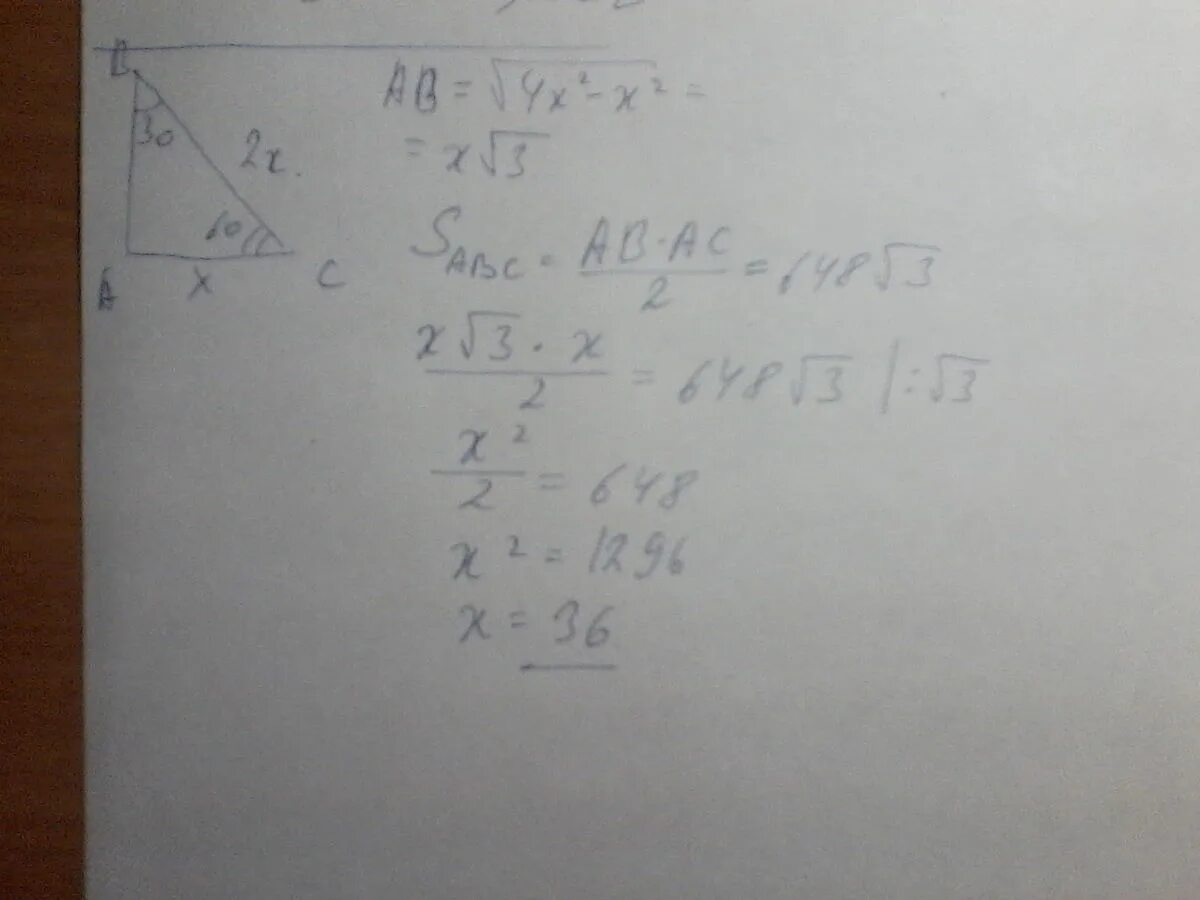 B
30
2x.
60
A
x
C
AB = √(4x² - x²) =
= x√3
S_ABC = AB · AC / 2 = 648√3
x√3 · x / 2 = 648√3 | : √3
x² / 2 = 648
x² = 1296
x = 36